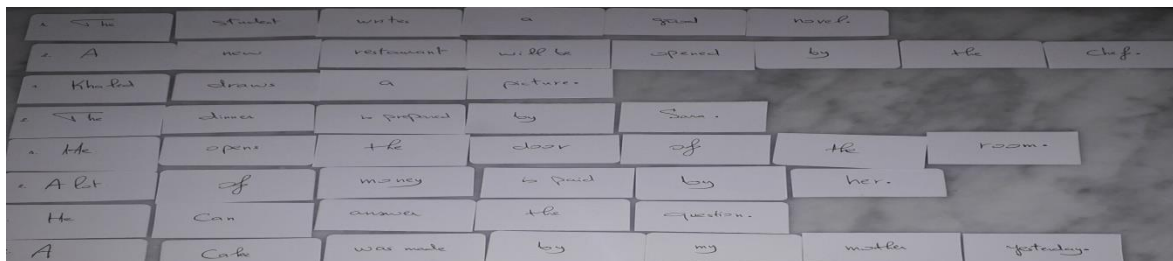 The student writes a good novel.
A new restaurant will be opened by the chef.
Khaled draws a picture.
The dinner is prepared by Sara.
He opens the door of the room.
A lot of money is paid by her.
He Can answer the question.
A Cake was made by my mother yesterday.